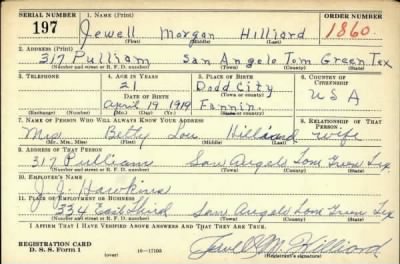 SERIAL NUMBER 1. NAME (Print) ORDER NUMBER
197 Jewell Morgan Hilliard 1860
(First) (Middle) (Last)
2. ADDRESS (Print)
317 Pulliam San Angelo Tom Green Tex
(Number and street or R. F. D. number) (Town) (County) (State)
3. TELEPHONE 4. AGE IN YEARS 5. PLACE OF BIRTH 6. COUNTRY OF CITIZENSHIP
21 Dodd City
DATE OF BIRTH (Town or county)
April 19 1919 Fannin. USA
(Exchange) (Number) (Mo.) (Day) (Yr.) (State or country)
7. NAME OF PERSON WHO WILL ALWAYS KNOW YOUR ADDRESS 8. RELATIONSHIP OF THAT PERSON
Mrs Betty Lou Hilliard wife
(Mr., Mrs., Miss) (First) (Middle) (Last)
9. ADDRESS OF THAT PERSON
317 Pulliam San Angelo Tom Green Tex.
(Number and street or R. F. D. number) (Town) (County) (State)
10. EMPLOYER'S NAME
J. J. Hawkins
11. PLACE OF EMPLOYMENT OR BUSINESS
334 East Third San Angelo Tom Green Tex
(Number and street or R. F. D. number) (Town) (County) (State)
I AFFIRM THAT I HAVE VERIFIED ABOVE ANSWERS AND THAT THEY ARE TRUE.
REGISTRATION CARD
D. S. S. Form 1 (over) 16—17105 Jewell M Hilliard
(Registrant's signature)